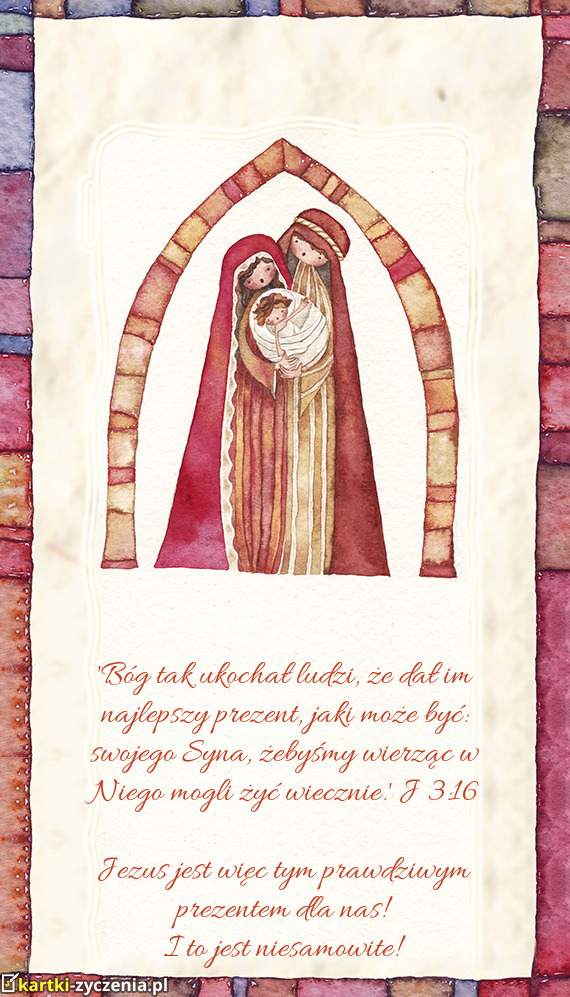 'Bóg tak ukochał ludzi, że dał im
najlepszy prezent, jaki może być:
swojego Syna, żebyśmy wierząc w
Niego mogli żyć wiecznie.' J 3:16
Jezus jest więc tym prawdziwym
prezentem dla nas!
I to jest niesamowite!
kartki-zyczenia.pl